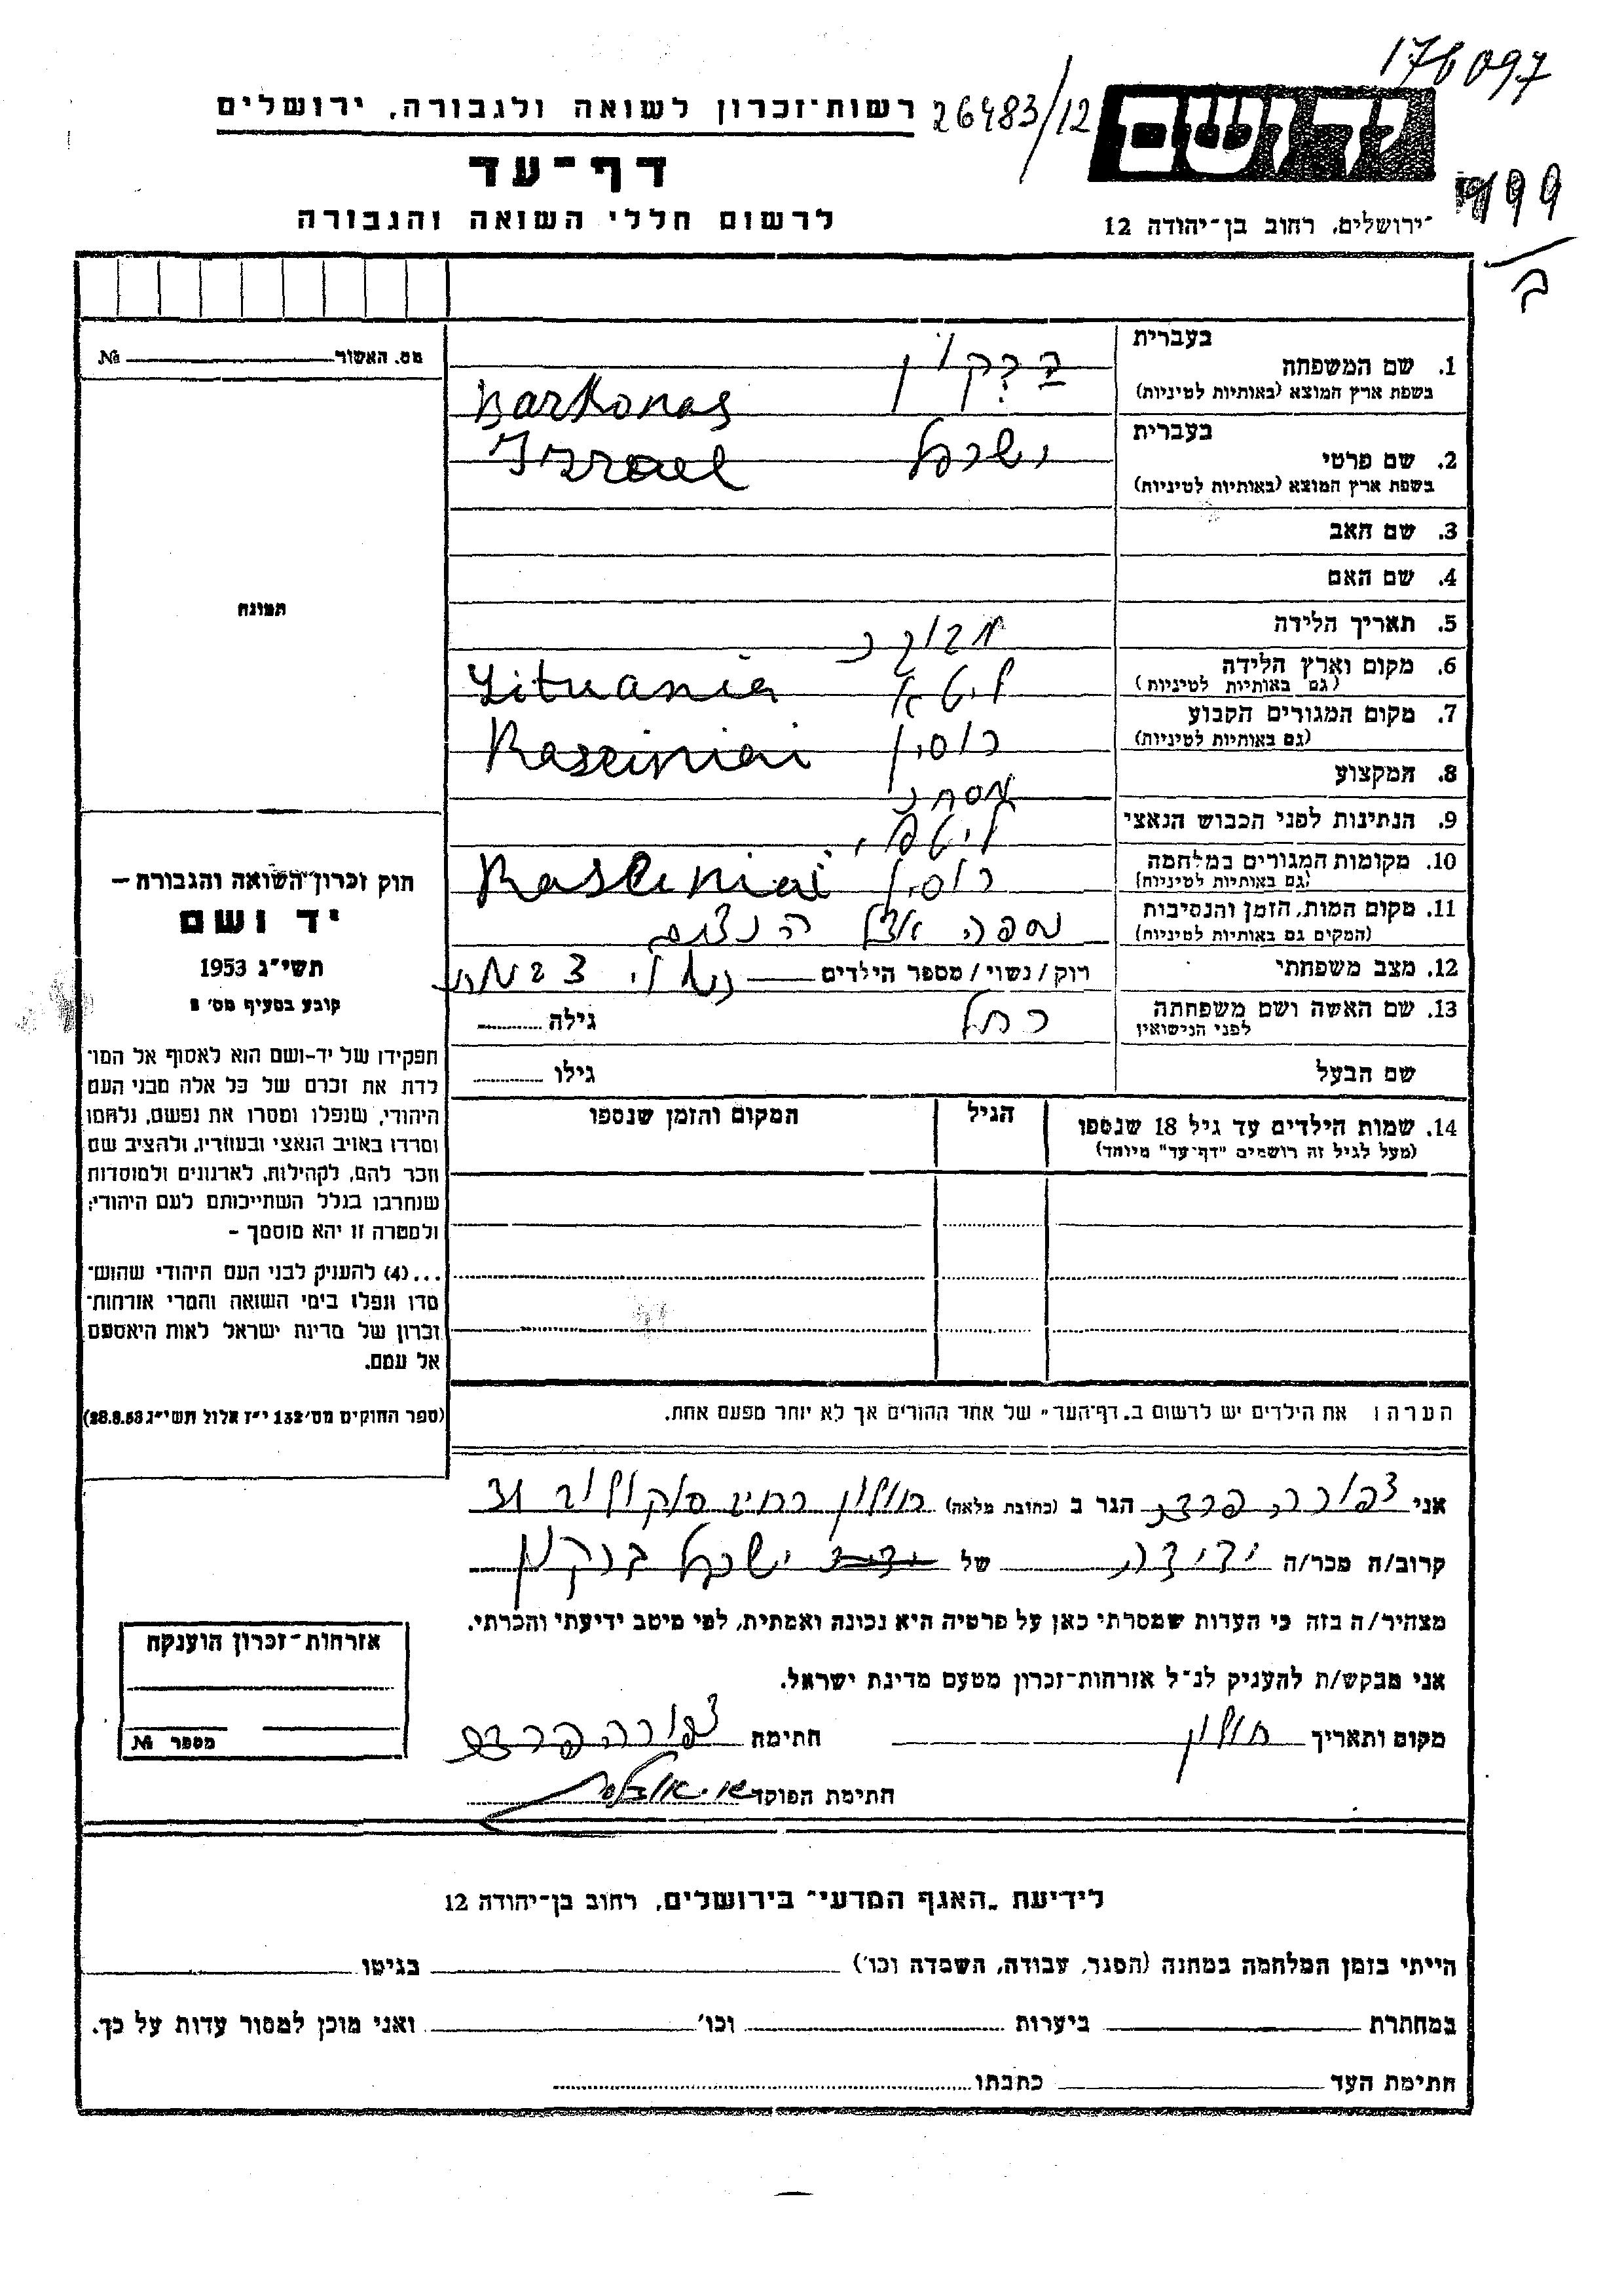 176097
רשות־זכרון לשואה ולגבורה, ירושלים
26483/12
ידושם
דף־עד
לרשום חללי השואה והגבורה
ירושלים, רחוב בן־יהודה 12
בעברית
1. שם המשפחה
בשפת ארץ המוצא (באותיות לטיניות)
ברקון
Barkonas
בעברית
2. שם פרטי
בשפת ארץ המוצא (באותיות לטיניות)
ישראל
Izrael
3. שם האב
4. שם האם
5. תאריך הלידה
מבוגר
6. מקום וארץ הלידה
(גם באותיות לטיניות)
ליטא Lituania
7. מקום המגורים הקבוע
(גם באותיות לטיניות)
רוסין Raseiniai
8. המקצוע
מסחר
9. הנתינות לפני הכבוש הנאצי
ליטאי
10. מקומות המגורים במלחמה
(גם באותיות לטיניות)
רוסין Raseiniai
11. מקום המות, הזמן והנסיבות
(המקים גם באותיות לטיניות)
נספה אצל הנצים
12. מצב משפחתי
רוק / נשוי / מספר הילדים
נשוי
13. שם האשה ושם משפחתה
לפני הנישואין
רחל
גילה
שם הבעל
גילו
14. שמות הילדים עד גיל 18 שנספו
(מעל לגיל זה רושמים "דף־עד" מיוחד)
הגיל
המקום והזמן שנספו
הערה: את הילדים יש לרשום ב„דף־העד" של אחד ההורים אך לא יותר מפעם אחת.
מס. האשור №
תמונה
חוק זכרון השואה והגבורה —
יד ושם
תשי״ג 1953
קובע בסעיף מס׳ 2
תפקידו של יד-ושם הוא לאסוף אל המו־
לדת את זכרם של כל אלה מבני העם
היהודי, שנפלו ומסרו את נפשם, נלחמו
ומרדו באויב הנאצי ובעוזריו, ולהציב שם
וזכר להם, לקהילות, לארגונים ולמוסדות
שנחרבו בגלל השתייכותם לעם היהודי;
ולמטרה זו יהא מוסמך —
...(4) להעניק לבני העם היהודי שהוש־
מדו ונפלו בימי השואה והמרי אזרחות־
זכרון של מדינת ישראל לאות היאספם
אל עמם.
(ספר החוקים מס׳ 132 י״ז אלול תשי״ג 28.8.53)
אני צפורה פרצ הגר ב (כתובת מלאה) חולון רחוב סוקולוב
קרוב/ה מכר/ה ידידה של ישראל ברקון
מצהיר/ה בזה כי העדות שמסרתי כאן על פרטיה היא נכונה ואמתית, לפי מיטב ידיעתי והכרתי.
אני מבקש/ת להעניק לנ״ל אזרחות־זכרון מטעם מדינת ישראל.
מקום ותאריך חולון חתימה צפורה פרצ
חתימת הפוקד
אזרחות־זכרון הוענקה
מספר №
לידיעת „האגף המדעי" בירושלים, רחוב בן־יהודה 12
הייתי בזמן המלחמה במחנה (הסגר, עבודה, השמדה וכו׳) בגיטו
במחתרת ביערות וכו׳ ואני מוכן למסור עדות על כך.
חתימת העד כתבתו